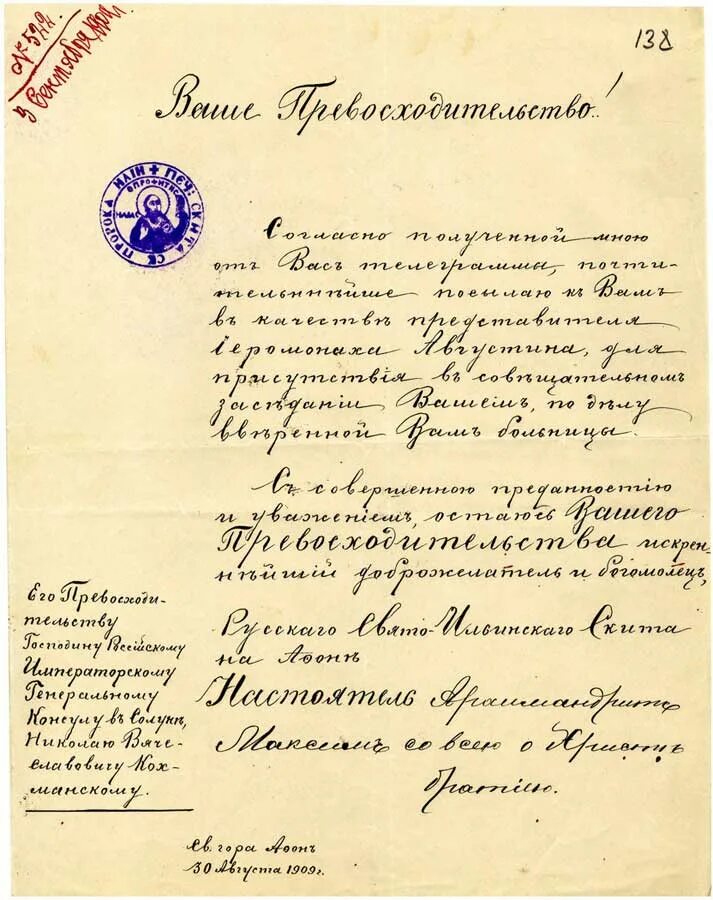 № 522
138
9 Сентября 1909
Ваше Превосходительство!
ПЕЧ: СКИТА СВ ПРОРОКА ИЛІИ
Согласно полученной мною
отъ Васъ телеграммы, почти-
тельнѣйше посылаю къ Вамъ
въ качествѣ представителя
Іеромонаха Августина, для
присутствія въ совѣщательномъ
засѣданіи Вашемъ, по дѣлу
ввѣренной Вамъ больницы.
Съ совершенною преданностію
и уваженіемъ, остаюсь Вашего
Превосходительства искрен-
нѣйшій доброжелатель и богомолецъ,
Русскаго Свято-Ильинскаго Скита
на Аѳонѣ
Настоятель Архимандритъ
Максимъ со всею о Христѣ
братіею.
Его Превосходи-
тельству
Господину Россійскому
Императорскому
Генеральному
Консулу въ Солунѣ,
Николаю Вяче-
славовичу Кох-
манскому.
Св. гора Аѳонъ
30 Августа 1909 г.